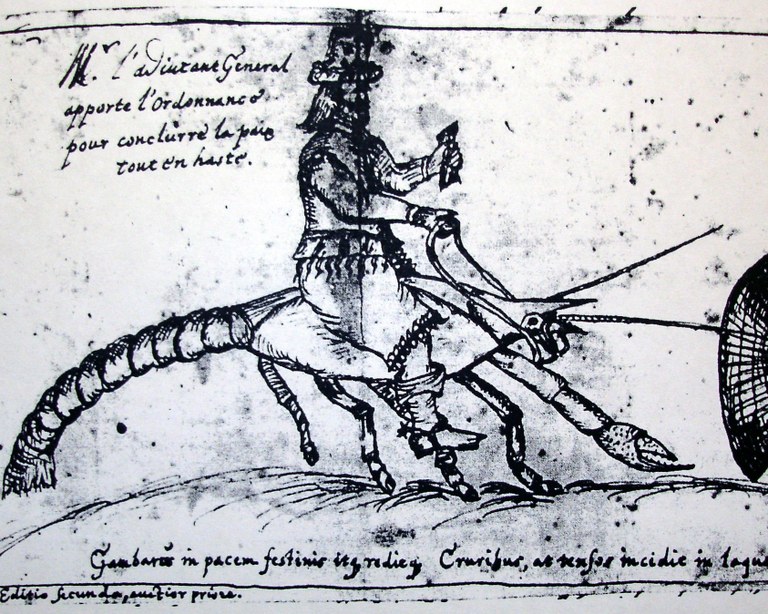 Mr. l'adiutant General
apporte l'Ordonnance
pour conclurre la paix
tout en haste.
in pacem festinis itq redieq Cruribus, at tensos incidit in laque
Editio secunda, auctior priore.